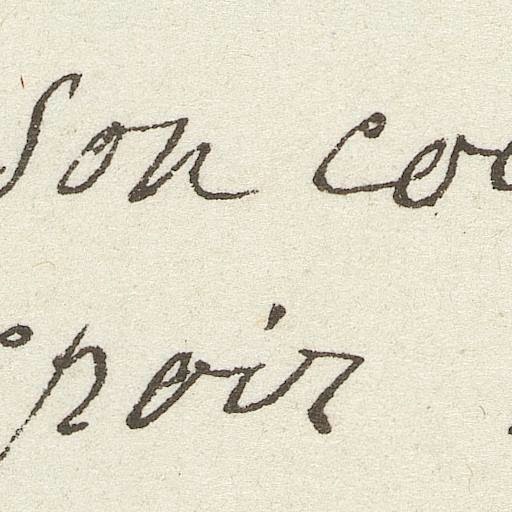 son coe
spoir